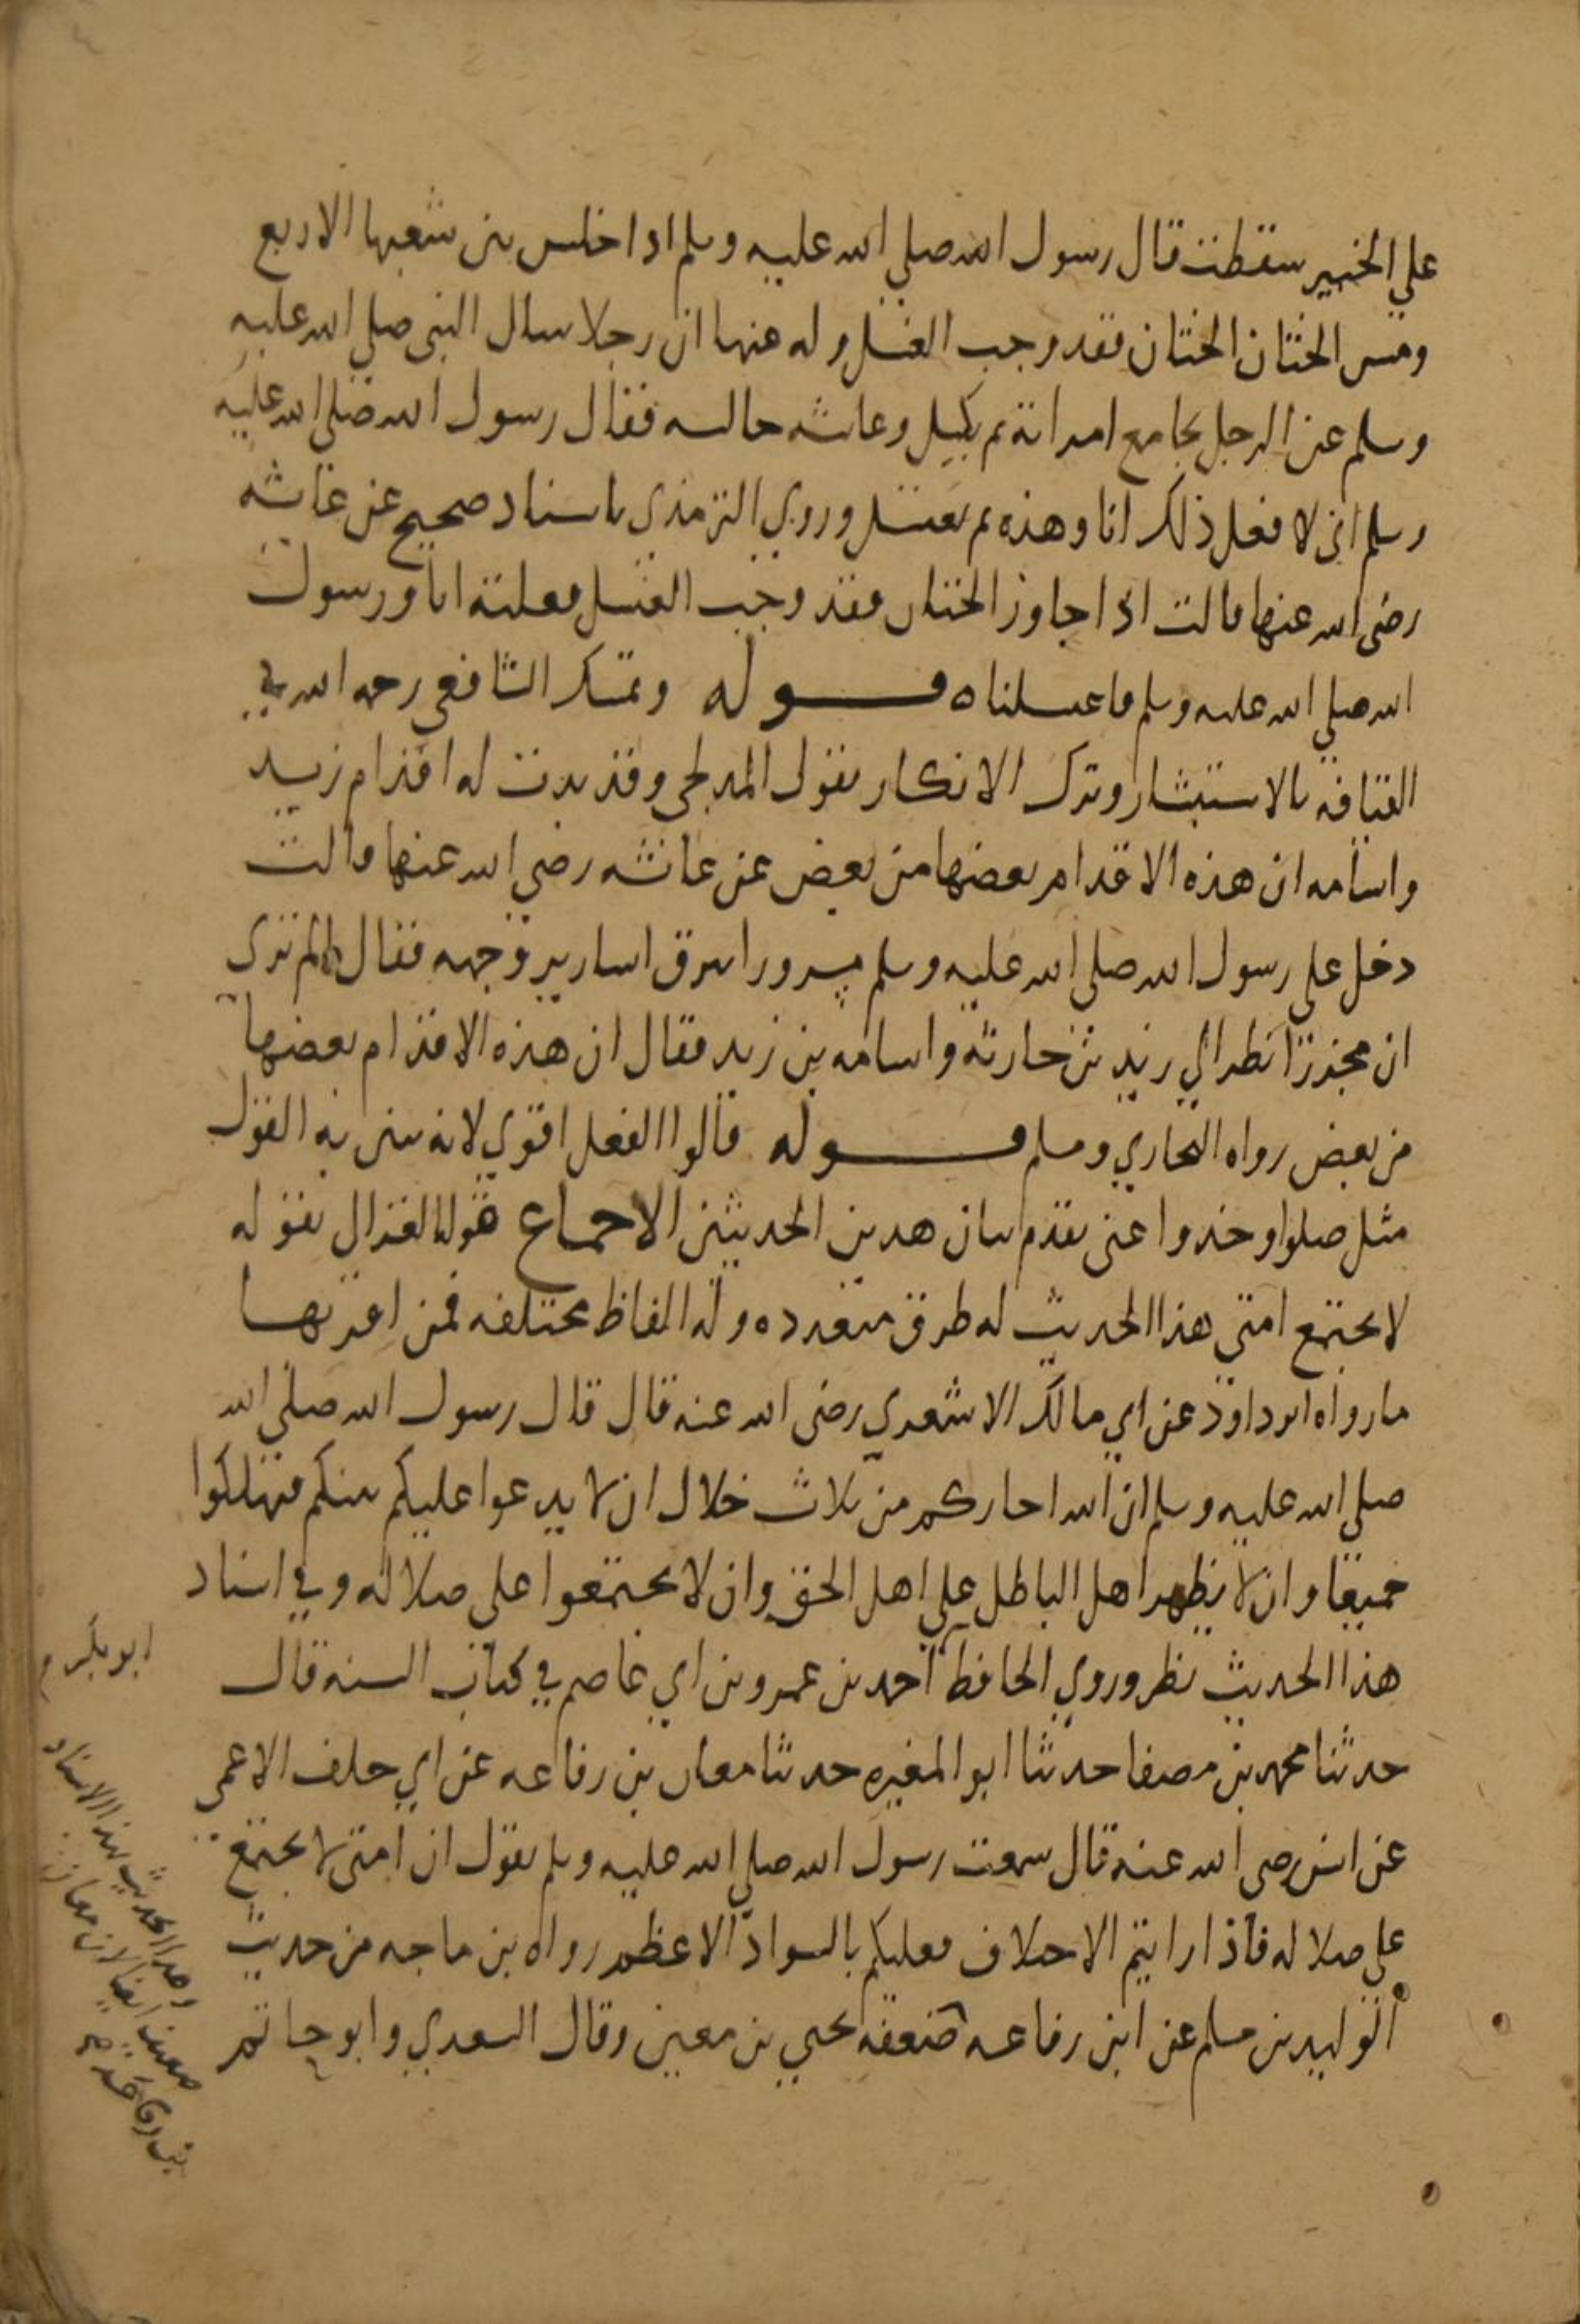 علي الخبير سقطت قال رسول الله صلي الله عليه وسلم اذا جلس بين شعبها الاربع
ومس الختان الختان فقد وجب الغسل وله عنها ان رجلا سال النبي صلي الله عليه
وسلم عن الرجل يجامع امراته ثم يكسل وعائشه جالسه فقال رسول الله صلي الله عليه
وسلم اني لافعل ذلك انا وهذه ثم نغتسل وروي الترمذي باسناد صحيح عن عائشه
رضي الله عنها قالت اذا جاوز الختان فقد وجب الغسل فعلته انا ورسول
الله صلي الله عليه وسلم فاغتسلناه قوله وتمسك الشافعي رحمه الله في
القيافه بالاستبشار وترك الانكار بقول المدلجي وقد بدت له اقدام زيد
واسامه ان هذه الاقدام بعضها من بعض عن عائشه رضي الله عنها قالت
دخل علي رسول الله صلي الله عليه وسلم مسرورا تبرق اسارير وجهه فقال الم تري
ان مجززا نظر الي زيد بن حارثه واسامه بن زيد فقال ان هذه الاقدام بعضها
من بعض رواه البخاري ومسلم قوله قالوا الفعل اقوي لانه يبين به القول
مثل صلوا وخذوا عني تقدم بيان هذين الحديثين الاجماع قوله الغزالي بقوله
لا تجتمع امتي هذا الحديث له طرق متعدده وله الفاظ مختلفه فمن اقربها
ما رواه ابو داود عن ابي مالك الاشعري رضي الله عنه قال قال رسول الله صلي الله
صلي الله عليه وسلم ان الله اجاركم من ثلاث خلال ان لا يدعوا عليكم نبيكم فتهلكوا
جميعا وان لا يظهر اهل الباطل علي اهل الحق وان لا تجتمعوا علي ضلاله وفي اسناد
هذا الحديث نظر وروي الحافظ احمد بن عمرو بن ابي عاصم في كتاب السنه قال
حدثنا محمد بن مصفا حدثنا ابو المغيره حدثنا معان بن رفاعه عن ابي خلف الاعمي
عن انس رضي الله عنه قال سمعت رسول الله صلي الله عليه وسلم يقول ان امتي لا تجتمع
علي ضلاله فاذا رايتم الاختلاف فعليكم بالسواد الاعظم رواه بن ماجه من حديث
الوليد بن مسلم عن ابن رفاعه ضعفه يحيي بن معين وقال السعدي وابو حاتم
ابو بكر
وهذا الحديث بهذا الاسناد
ضعيف ايضا لان معان
بن رفاعه